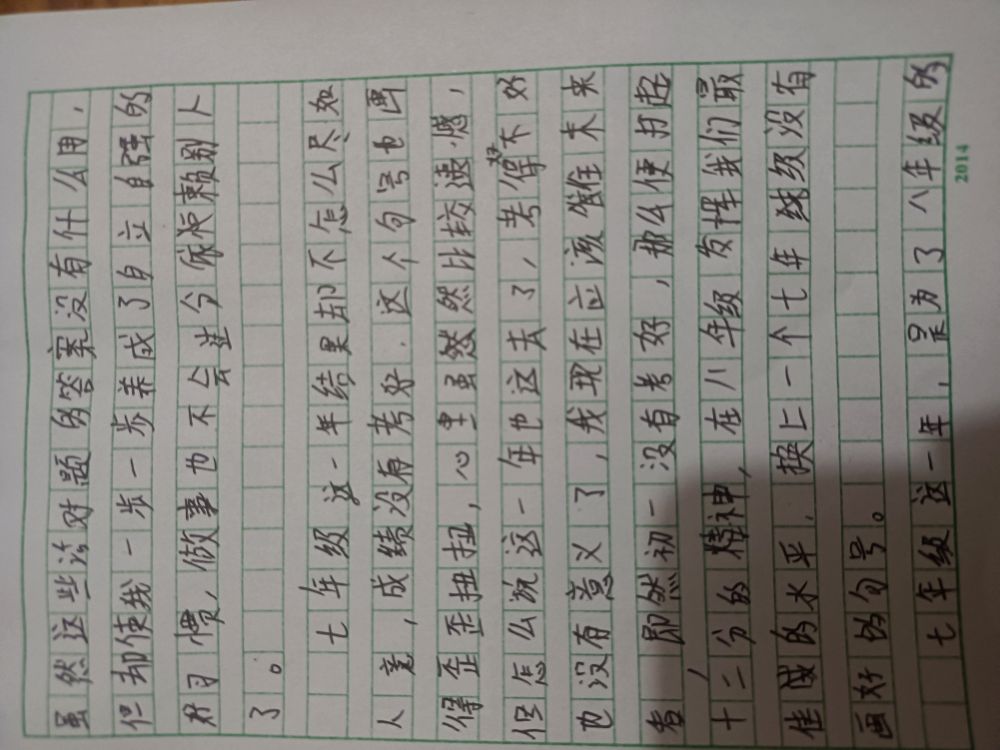 虽然这些许对题的答案没有什么用，
但却使我一步一步养成了自立自强的
好习惯，做事也不会过分依赖别人
了。
七年级这一年结果却不怎么尽如
人意，成绩没有考好．这个句号也画
得歪歪扭扭，心里虽然然比较遗憾，
但怎么说这一年也过去了，考得好不好
也没有意义了，我现在应该登住未来
看，即然初一没有考好，那么便打起
十二分的精神，在八年级发挥我们最
佳的水平．换上一个七年级没有
画好的句号。
七年级这一年，是为了八年级的
2014